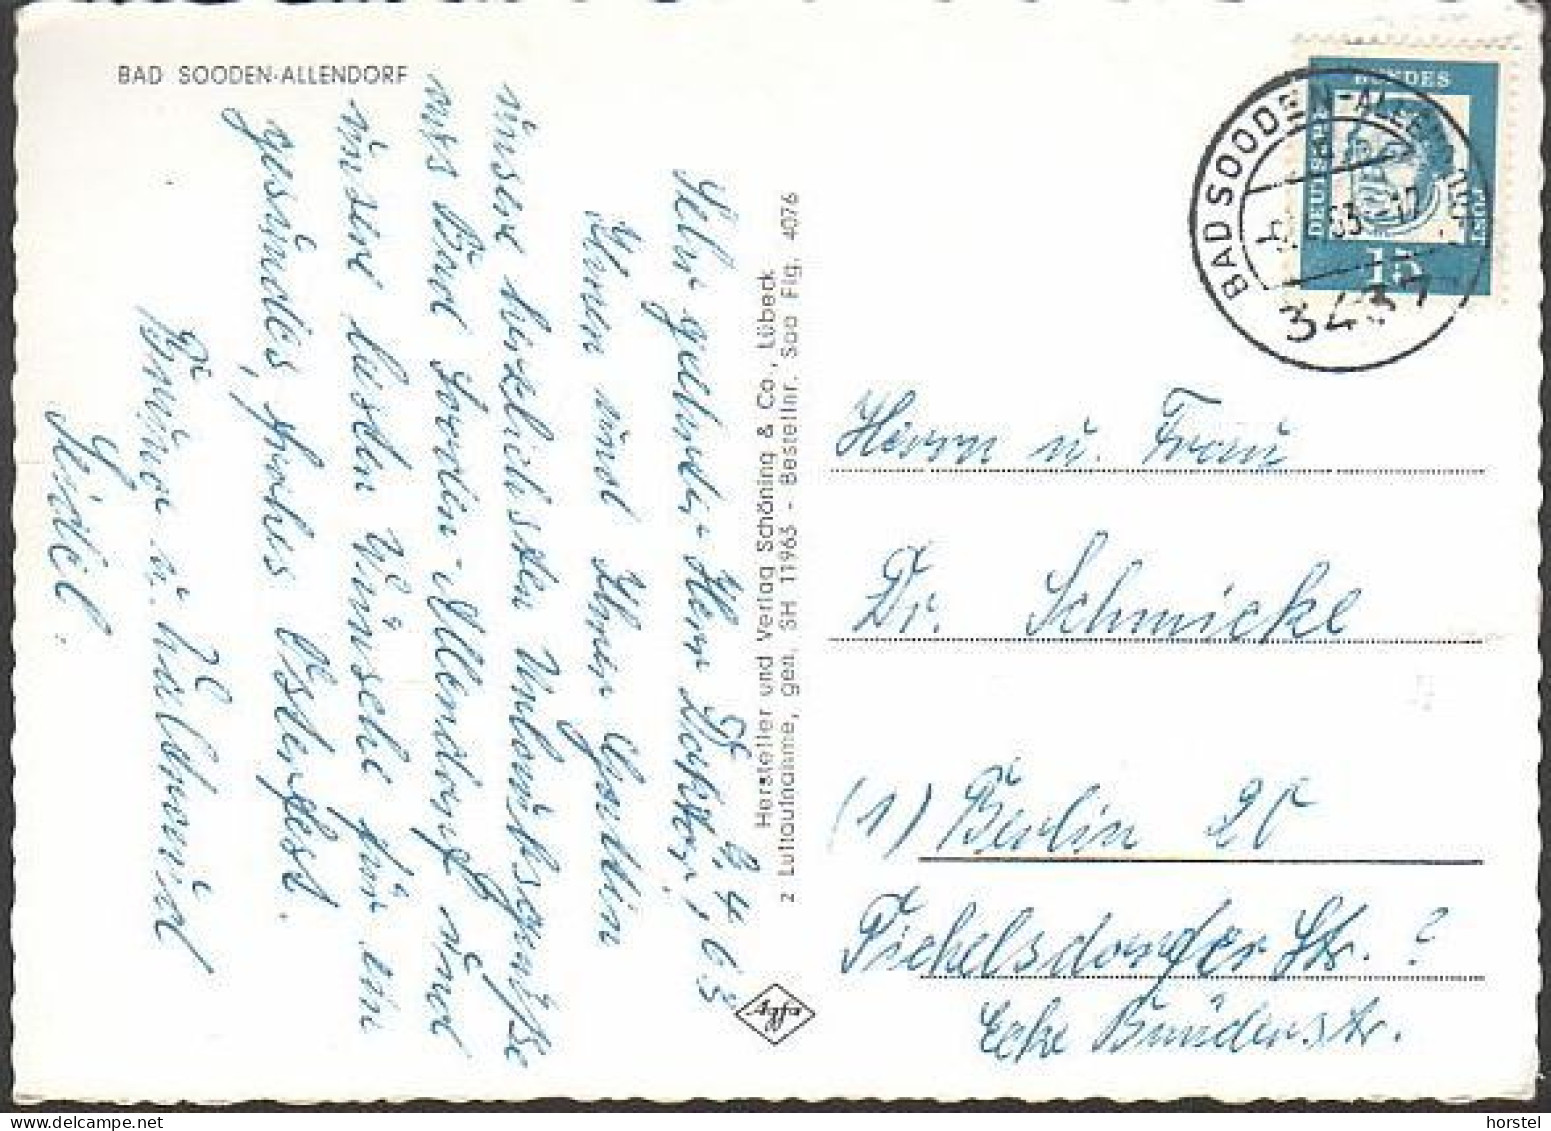 BAD SOODEN-ALLENDORF
9.4.63
Sehr geehrter Herr Doktor,
Ihnen und Ihrer Gattin
unsere herzlichsten Urlaubsgrüße
aus Bad Sooden-Allendorf und
unsere besten Wünsche für ein
gesundes, frohes Osterfest.
Ihr
Seidel.
Hersteller und Verlag Schöning & Co., Lübeck
z Luftaufnahme, gen. SH 11963 - Bestellnr. Soo Flg. 4076
Agfa
DEUTSCHE BUNDESPOST
15
BAD SOODEN-ALLENDORF
63
3437
Herrn u. Frau
Dr. Schmicke
(1) Berlin 20
Pichelsdorfer Str. ?
Ecke
horstel